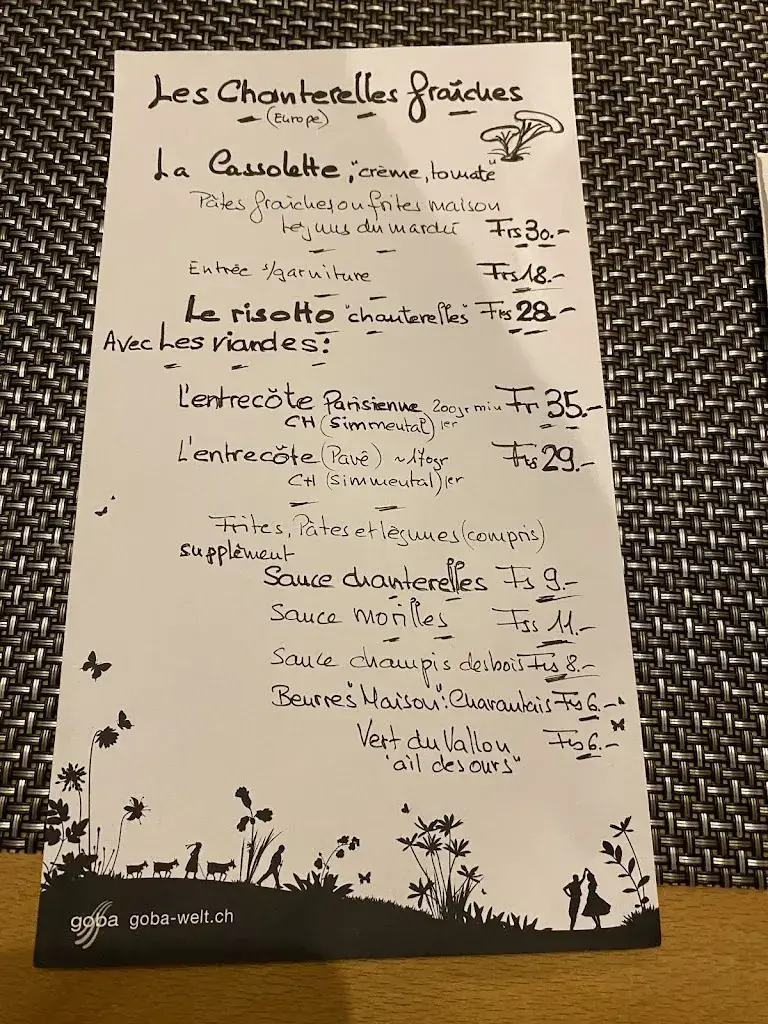 Les Chanterelles fraîches
(Europe)
La Cassolette, "crème, tomate"
Pâtes fraiches ou frites maison
légumes du marché Frs 30.-
Entrée s/garniture Frs 18.-
Le risotto "chanterelles" Frs 28.-
Avec Les viandes:
L'entrecôte Parisienne 200gr min Fr 35.-
CH (Simmental) 1er
L'entrecôte (Pavé) ~170gr Frs 29.-
CH (Simmental) 1er
Frites, Pâtes et légumes (compris)
supplément
Sauce chanterelles Fs 9.-
Sauce morilles Frs 11.-
Sauce champis des bois Frs 8.-
Beurres "Maison": Charantais Frs 6.-
Vert du Vallon Frs 6.-
"ail des ours"
goba goba-welt.ch